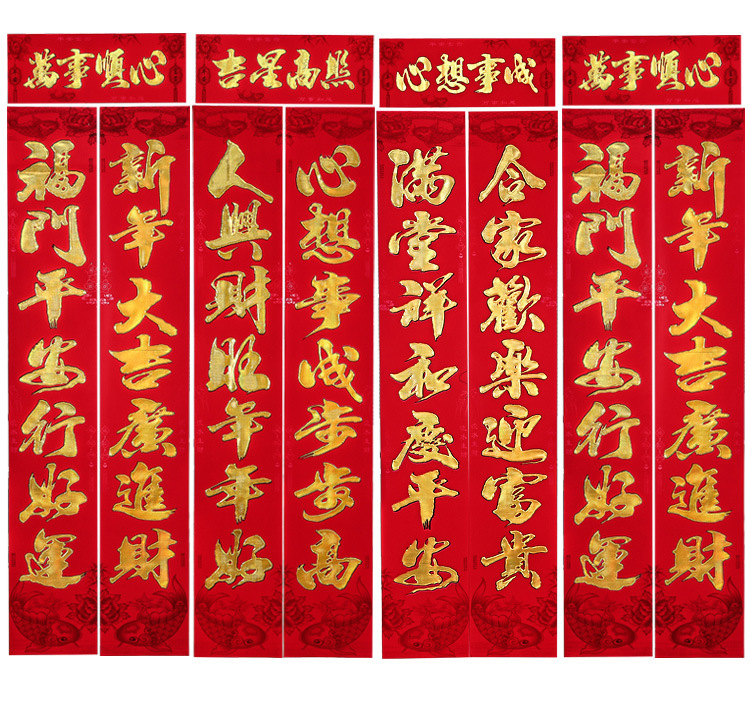 萬事順心
福門平安行好運
新年大吉廣進財
吉星高照
人興財旺年年好
心想事成步步高
心想事成
滿堂祥和慶平安
合家歡樂迎富貴
萬事順心
福門平安行好運
新年大吉廣進財